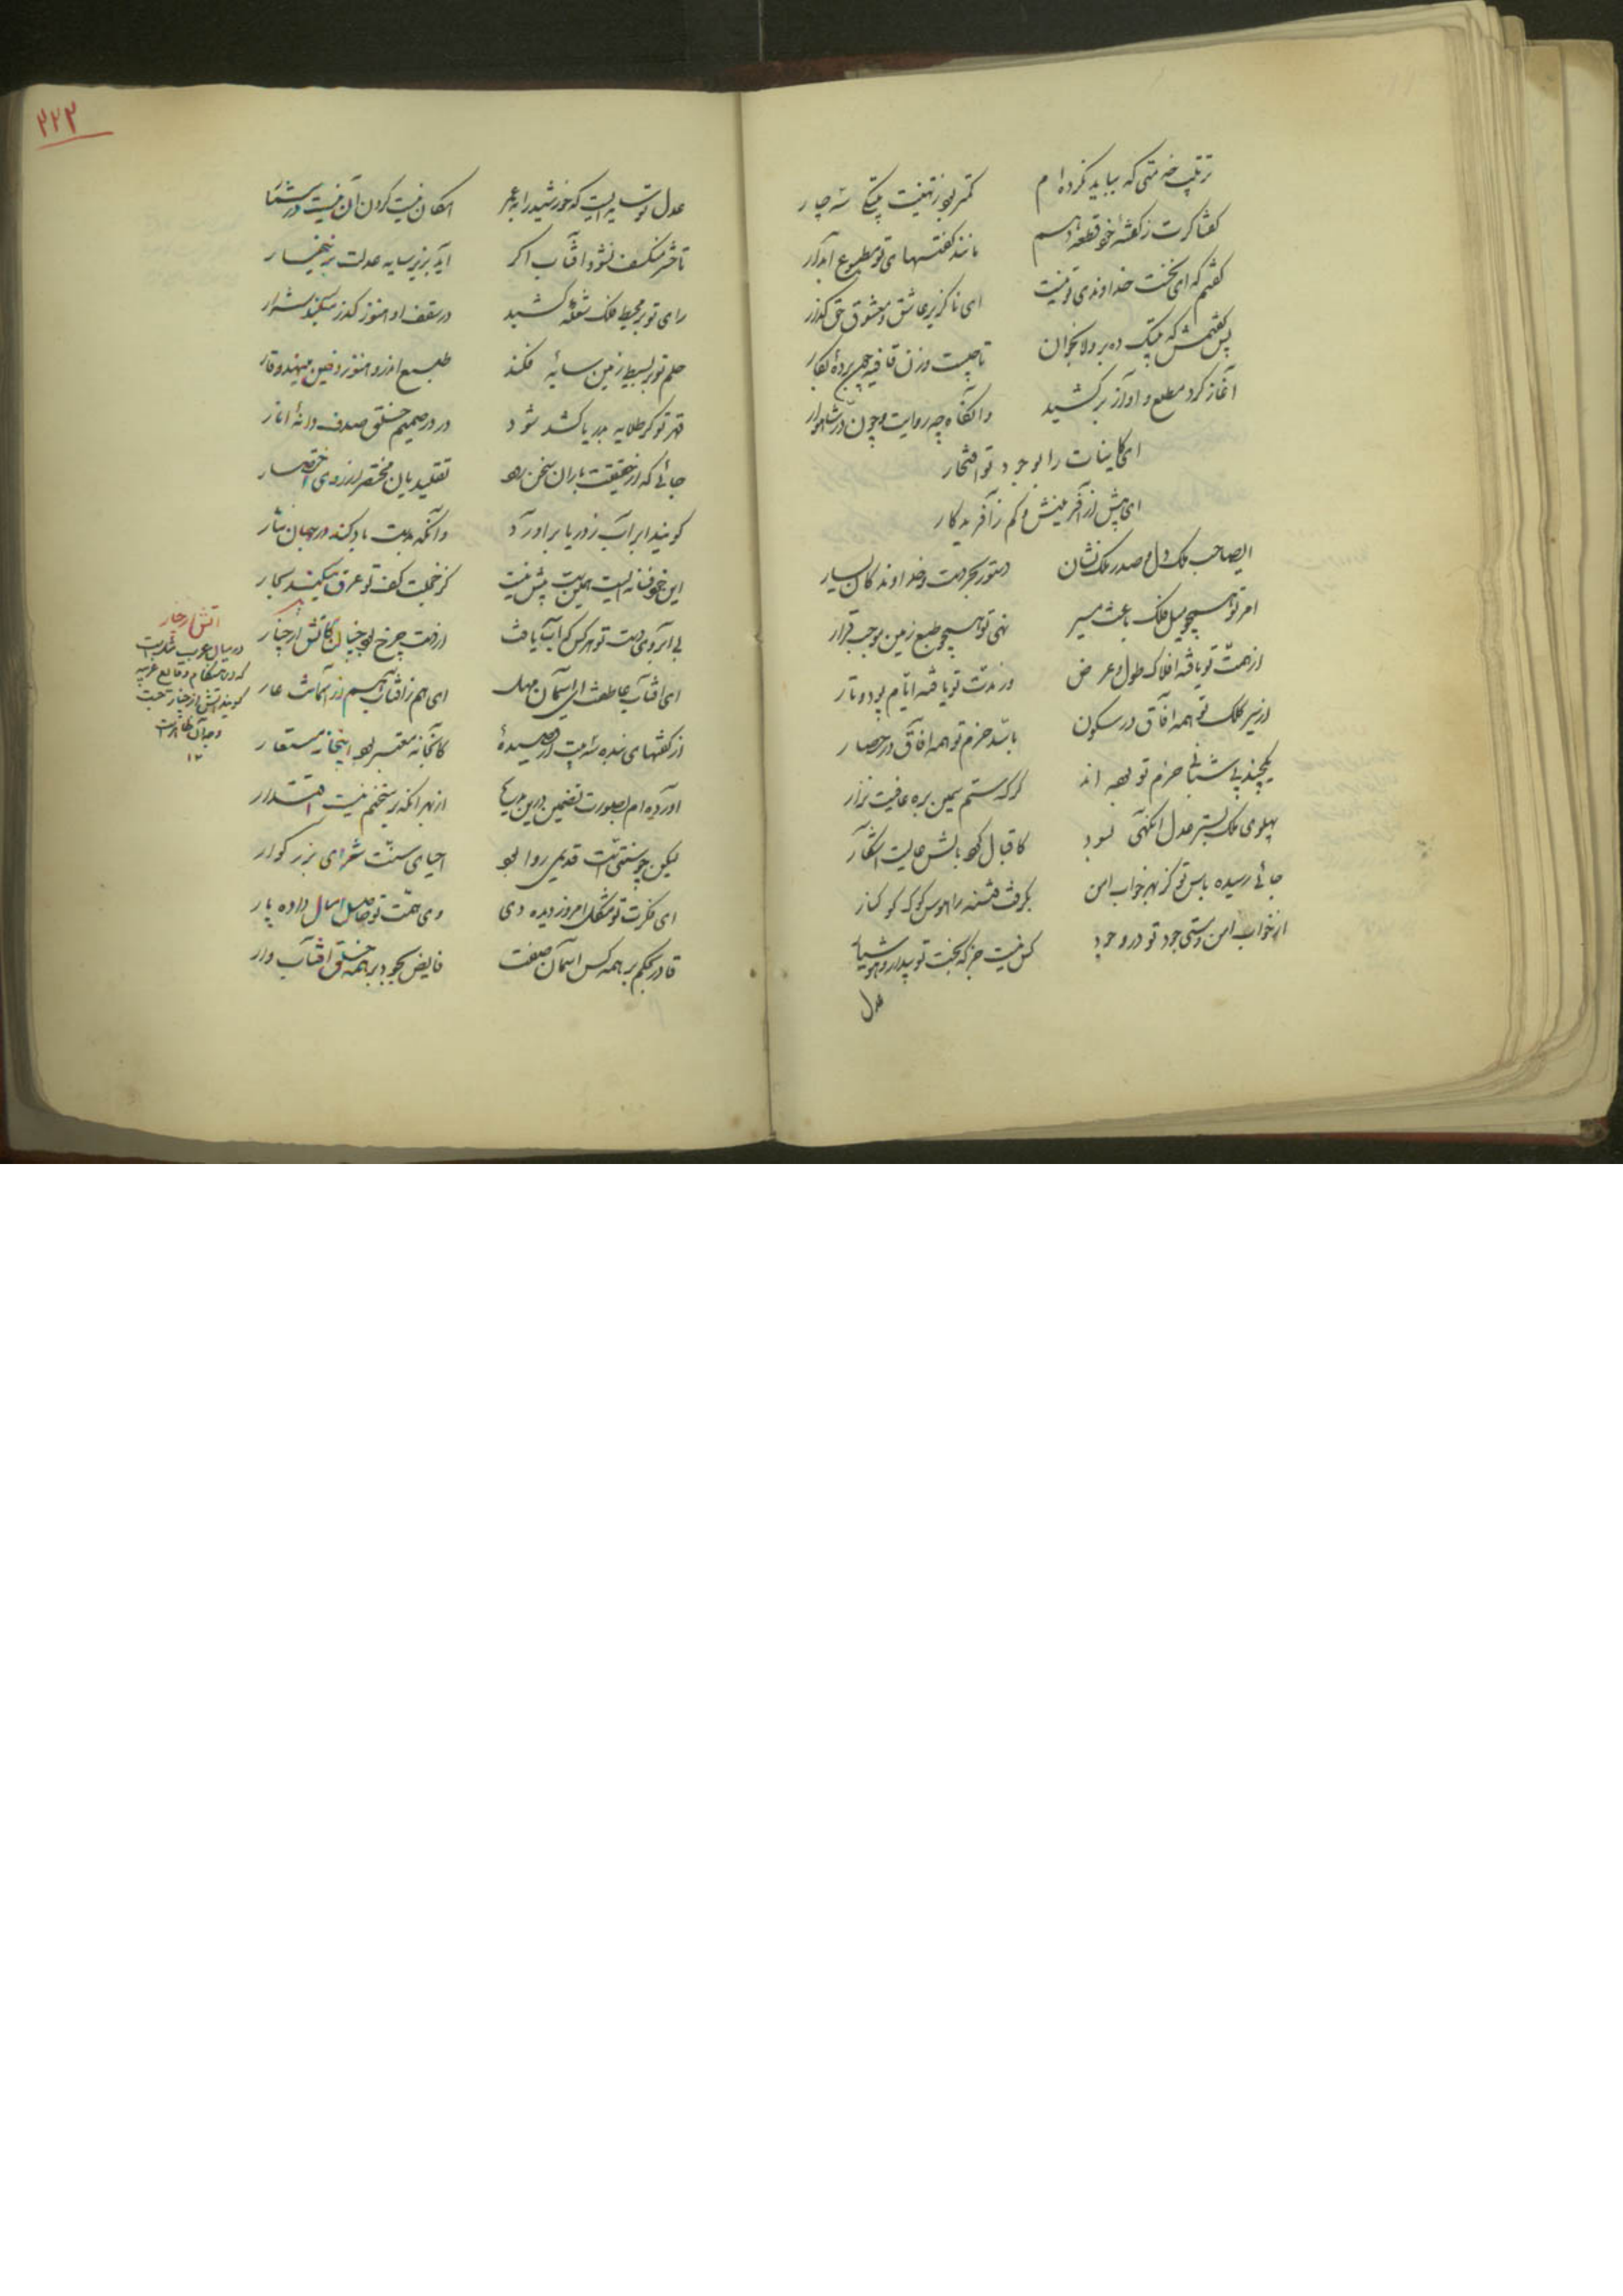 ترتیب خدمتی که بباید نکرده ام
کمتر بود ز تهنیت بیتکی سه چار
گفتا گرت ز گفتهٔ خود قطعهٔ دهم
مانند گفتهای تو مطبوع و آبدار
گفتم که ای بخت خداوندی تو نیست
ای ناگزیر عاشق و معشوق حق گذار
پس گفتمش که بیتک ده بر ولا بخوان
تا چیست وزن قافیه چون بردهٔ بکار
آغاز کرد مطلع و آواز برکشید
وانگاه چه روایت چون در شاهوار
ای کاینات را بوجود تو افتخار
ای بیش از آفرینش و کم ز آفریدگار
ای صاحب ملک دل و صدر ملک نشان
دستور بحر دست و خداوند کان یسار
امر تو همچو میل فلک باعث مسیر
نهی تو همچو طبع زمین موجب قرار
از همت تو یافته افلاک طول و عرض
وز مدت تو یافته ایام پود و تار
از سیر کلک تو همه آفاق در سکون
باشد حزم تو همه آفاق در حصار
یکچند بی شبانی حزم تو بوده اند
گرگ ستم سمین بره عافیت نزار
پهلوی ملک بستر عدل آنگهی بسود
کاقبال کرد بالش عالیت آشکار
جائی رسیده باس تو کز بهر خواب امن
بگرفت فتنه را هوس کوک و کوکنار
از خواب امن و مستی جود تو در وجود
کس نیست جز که بخت تو بیدار و هوشیار
عدل
۲۲۳
عدل تو سایه ایست که خورشید را ز عجز
امکان نیست کردن آن نیست در شمار
تا حشر منکسف نشود آفتاب اگر
آید بزیر سایه عدلت بزینهار
رای تو بر محیط فلک شعلهٔ کشید
در سقف او هنوز گذر میکند شرار
حلم تو بر بسیط زمین سایهٔ فکند
طبع اندرو هنوز دفین مینهد وقار
قهر تو گر طلایه بدریا کشد شود
در در صمیم حلق صدف دانهٔ انار
جائی که از حقیقت باران سخن رود
تقلیدیان مختصر از روی اختصار
گویند ابر آب ز دریا برآورد
وانگه بدست باد کند در جهان نثار
این خود فسانه ایست همین است بیش نیست
کز خجلت کف تو عرق میکند بحار
بی آبروی دست تو هر کس که آب یافت
از دست چرخ بود چنان کاتش از چنار
ای آفتاب عاطفت ای آسمان مهل
ای هم ز آفتاب هم از آسمانت عار
از گفتهای بنده سه بیت از قصیدهٔ
کانجا نه معتبر بود اینجا نه مستعار
آورده ام بصورت تضمین در این مدیح
از بهر آنکه بر سخنم نیست اقتدار
لیکن چو سنتی است قدیمی روا بود
احیای سنت شعرای بزرگوار
ای فکرت تو مشکل امروز دیده دی
وی همت تو حاصل امسال داده پار
قادر بحکم بر همه کس آسمان صفت
فایض بجود بر همه خلق آفتاب وار
آتش از چنار
در میان عرب مثل است
که در هنگام وقایع غریبه
گویند آتش از چنار جست
و جهان ظاهر است
۱۲